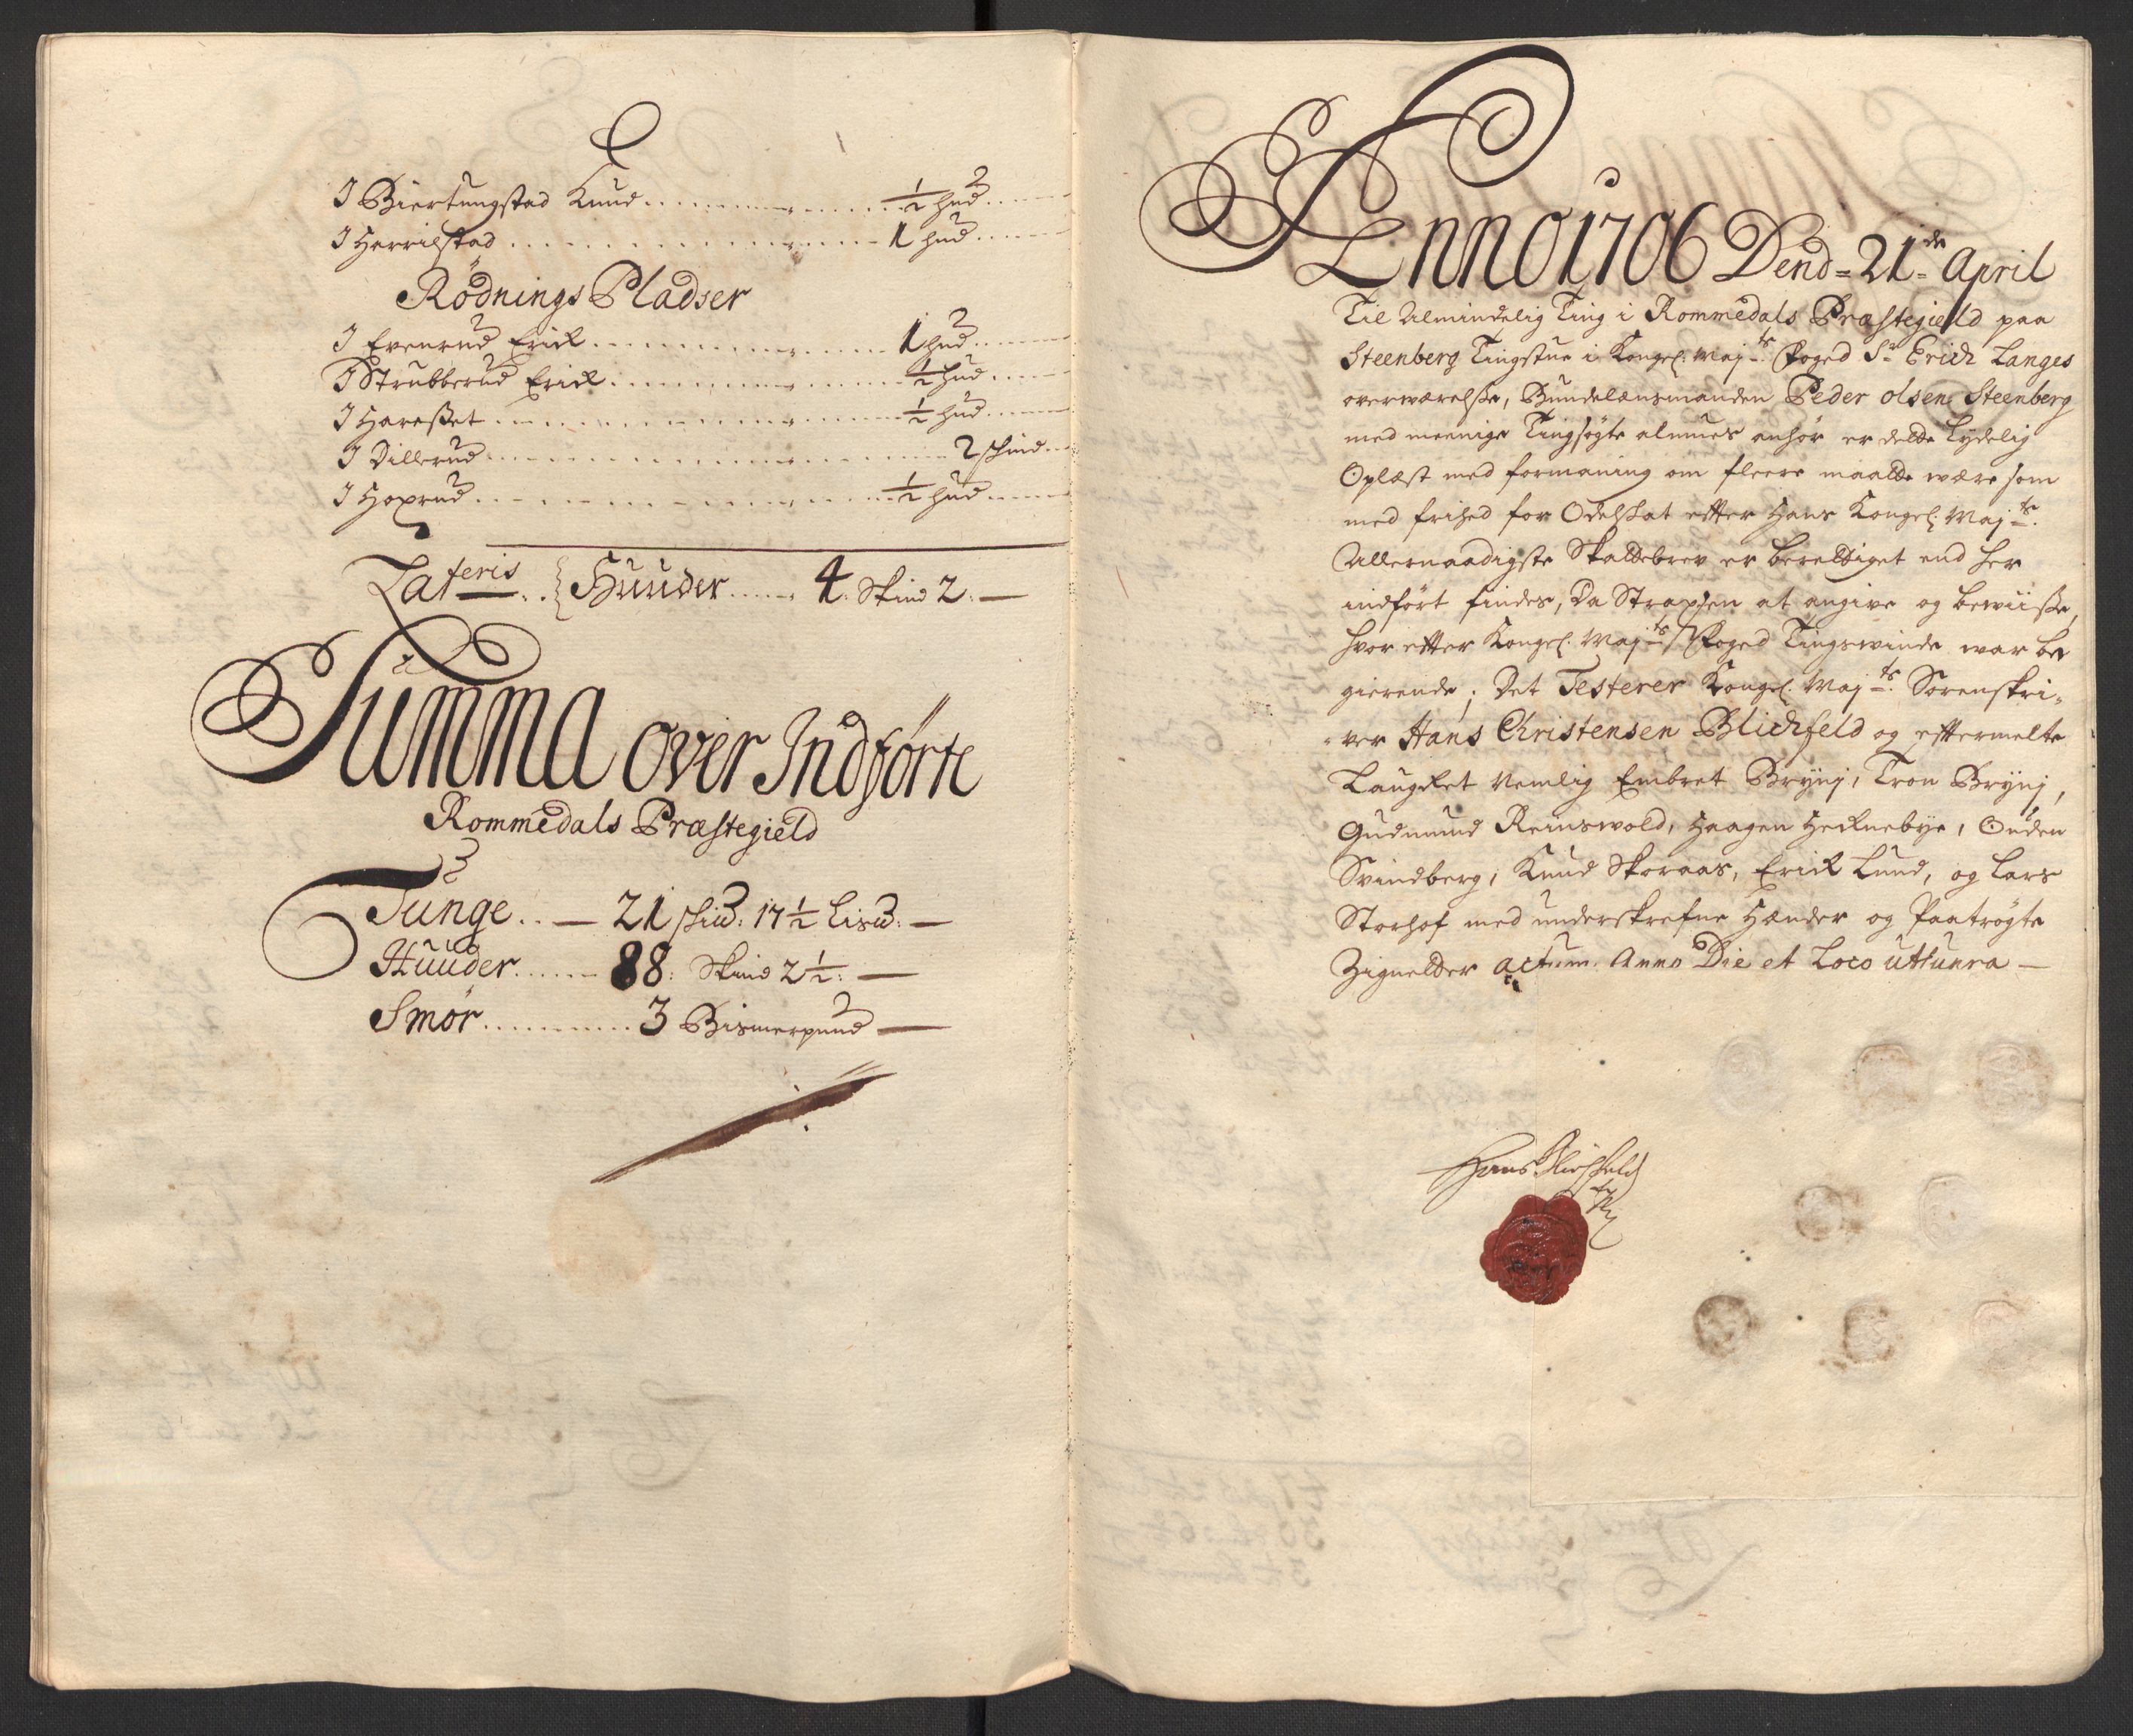 I Biertungstad Knud ... ½ hud
I Herrilstad ... 1 hud
Rödnings Pladser
I Evenrud Erick ... 1 hud
I Strubberud Erick ... ½ hud
I Hareßet ... ½ hud
I Dillerud ... 2 skind
I Hoxrud ... ½ hud
Lateris .. Huuder ... 4. Skind 2. —
Summa over Indförte
Rommedals Præstegield
Tunge .. — 21 skiu: 17½ Lisu: —
Huuder ... 88: Skind 2½: —
Smör ... 3 Bismerpund —
Anno 1706 Dend = 21de April
Til Almindelig Ting i Rommedals Præstegield paa
Steenberg Tingstue i Kongel: Maj:ts Foged Sr Erich Langes
overværelße, Bundelænsmanden Peder olsen Steenberg
med meenige Tingsøgte almues anhör er dette lydelig
Oplæst med formaning om fleere maatte være som
med frihed for Odelskat efter Hans Kongel: Maj:ts
Allernaadigste Skattebrev er berettiget end her
indfört findes, Da Straxsen at angive og beviiße,
hvor efter Kongel: Maj:ts Foged Tingsvinde war be
gierende; Det Testerer Kongel: Maj:ts Sorenskri-
-ver Hans Christensen Blichfeld og eftermelte
Laugret Nemlig Embret Brynj, Tron Brynj,
Gudmund Reinswold, Haagen Hecknebye, Ouden
Svindberg, Knud Skoraas, Erick Lund, og Lars
Storhof med underskrefne Hænder og Paatrögte
Zigneter actum Anno Die et Loco utsupra —
Hans Blichfeld